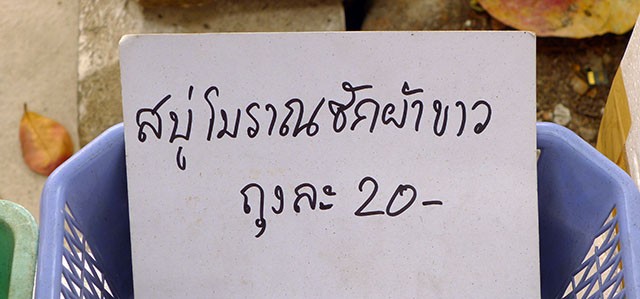 สบู่โบราณซักผ้าขาว
ถุงละ 20-